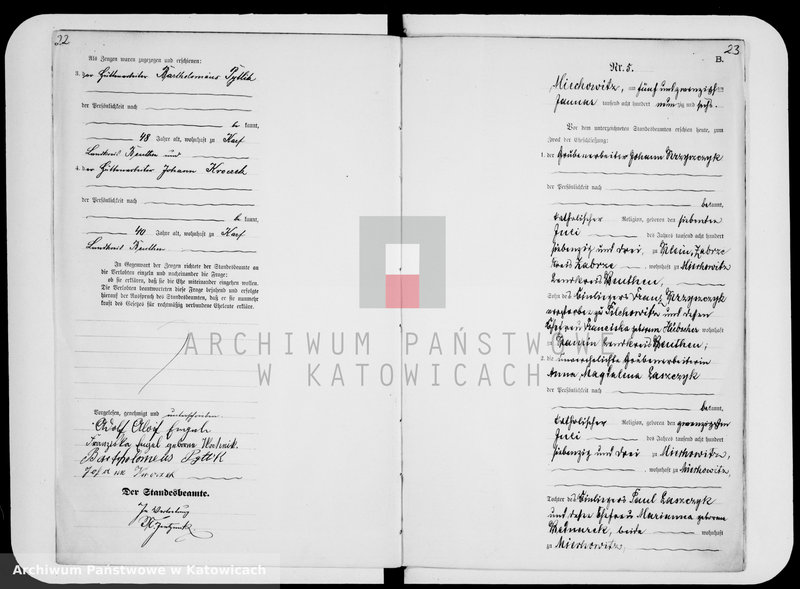 22
Als Zeugen waren zugezogen und erschienen:
3. der Hüttenarbeiter Bartholomäus Pyttlik
der Persönlichkeit nach
be kannt,
48 Jahre alt, wohnhaft zu Karf
Landkreis Beuthen und
4. der Hüttenarbeiter Johann
der Persönlichkeit nach
be kannt,
40 Jahre alt, wohnhaft zu Karf
Landkreis Beuthen.
In Gegenwart der Zeugen richtete der Standesbeamte an
die Verlobten einzeln und nacheinander die Frage:
ob sie erklären, daß sie die Ehe miteinander eingehen wollen.
Die Verlobten beantworteten diese Frage bejahend und erfolgte
hierauf der Ausspruch des Standesbeamten, daß er sie nunmehr
kraft des Gesetzes für rechtmäßig verbundene Eheleute erkläre.
Vorgelesen, genehmigt und unterschrieben
Adolf Alois Engel
Franziska Engel geborene
Bartholomeus Pyttlik
Johann
Der Standesbeamte.
In Vertretung
23
B.
Nr. 5.
Miechowitz, am fünf und zwanzigsten
Januar tausend acht hundert neunzig und sechs.
Vor dem unterzeichneten Standesbeamten erschien heute, zum
Zweck der Eheschließung:
1. der Grubenarbeiter Johann Skrzypczyk
der Persönlichkeit nach
bekannt,
katholischer Religion, geboren den siebenten
Juli des Jahres tausend acht hundert
siebenzig und drei, zu Klein Zabrze
Kreis Zabrze, wohnhaft zu Miechowitz
Landkreis Beuthen,
Sohn des Einliegers Franz Skrzypczyk
verstorben zu Pilchowitz und dessen
Ehefrau Franziska geborene wohnhaft
zu Landkreis Beuthen;
2. die unverehelichte Grubenarbeiterin
Anna Magdalina Laszczyk
der Persönlichkeit nach
bekannt,
katholischer Religion, geboren den zwanzigsten
Juli des Jahres tausend acht hundert
siebenzig und drei zu Miechowitz,
wohnhaft zu Miechowitz,
Tochter des Einliegers Paul Laszczyk
und dessen Ehefrau Marianna geborene
Bednarek, beide wohnhaft
zu Miechowitz,
ARCHIWUM PAŃSTWOWE
W KATOWICACH
Archiwum Państwowe w Katowicach